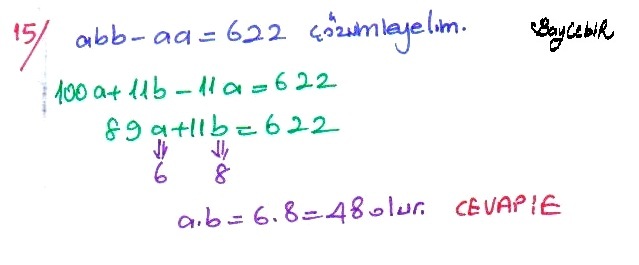 15/ abb - aa = 622 çözümleyelim. BayCebir
100a + 11b - 11a = 622
89a + 11b = 622
⇓ ⇓
6 8
a.b = 6.8 = 48 olur. CEVAP!E